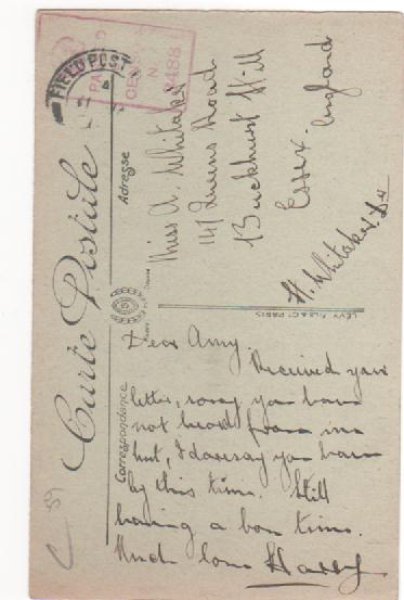 Carte Postale
FIELD POST
PA
CEN
N
2488
Adresse
Miss A. Whitaker
141 Queens Road
Buckhurst Hill
Essex.
England
H. Whitaker
LEVY FILS & Cie PARIS
Correspondance
Dear Amy.
Received your
letter, sorry you have
not heard from me
but, I daresay you have
by this time. Still
having a bon time.
Much love Harry